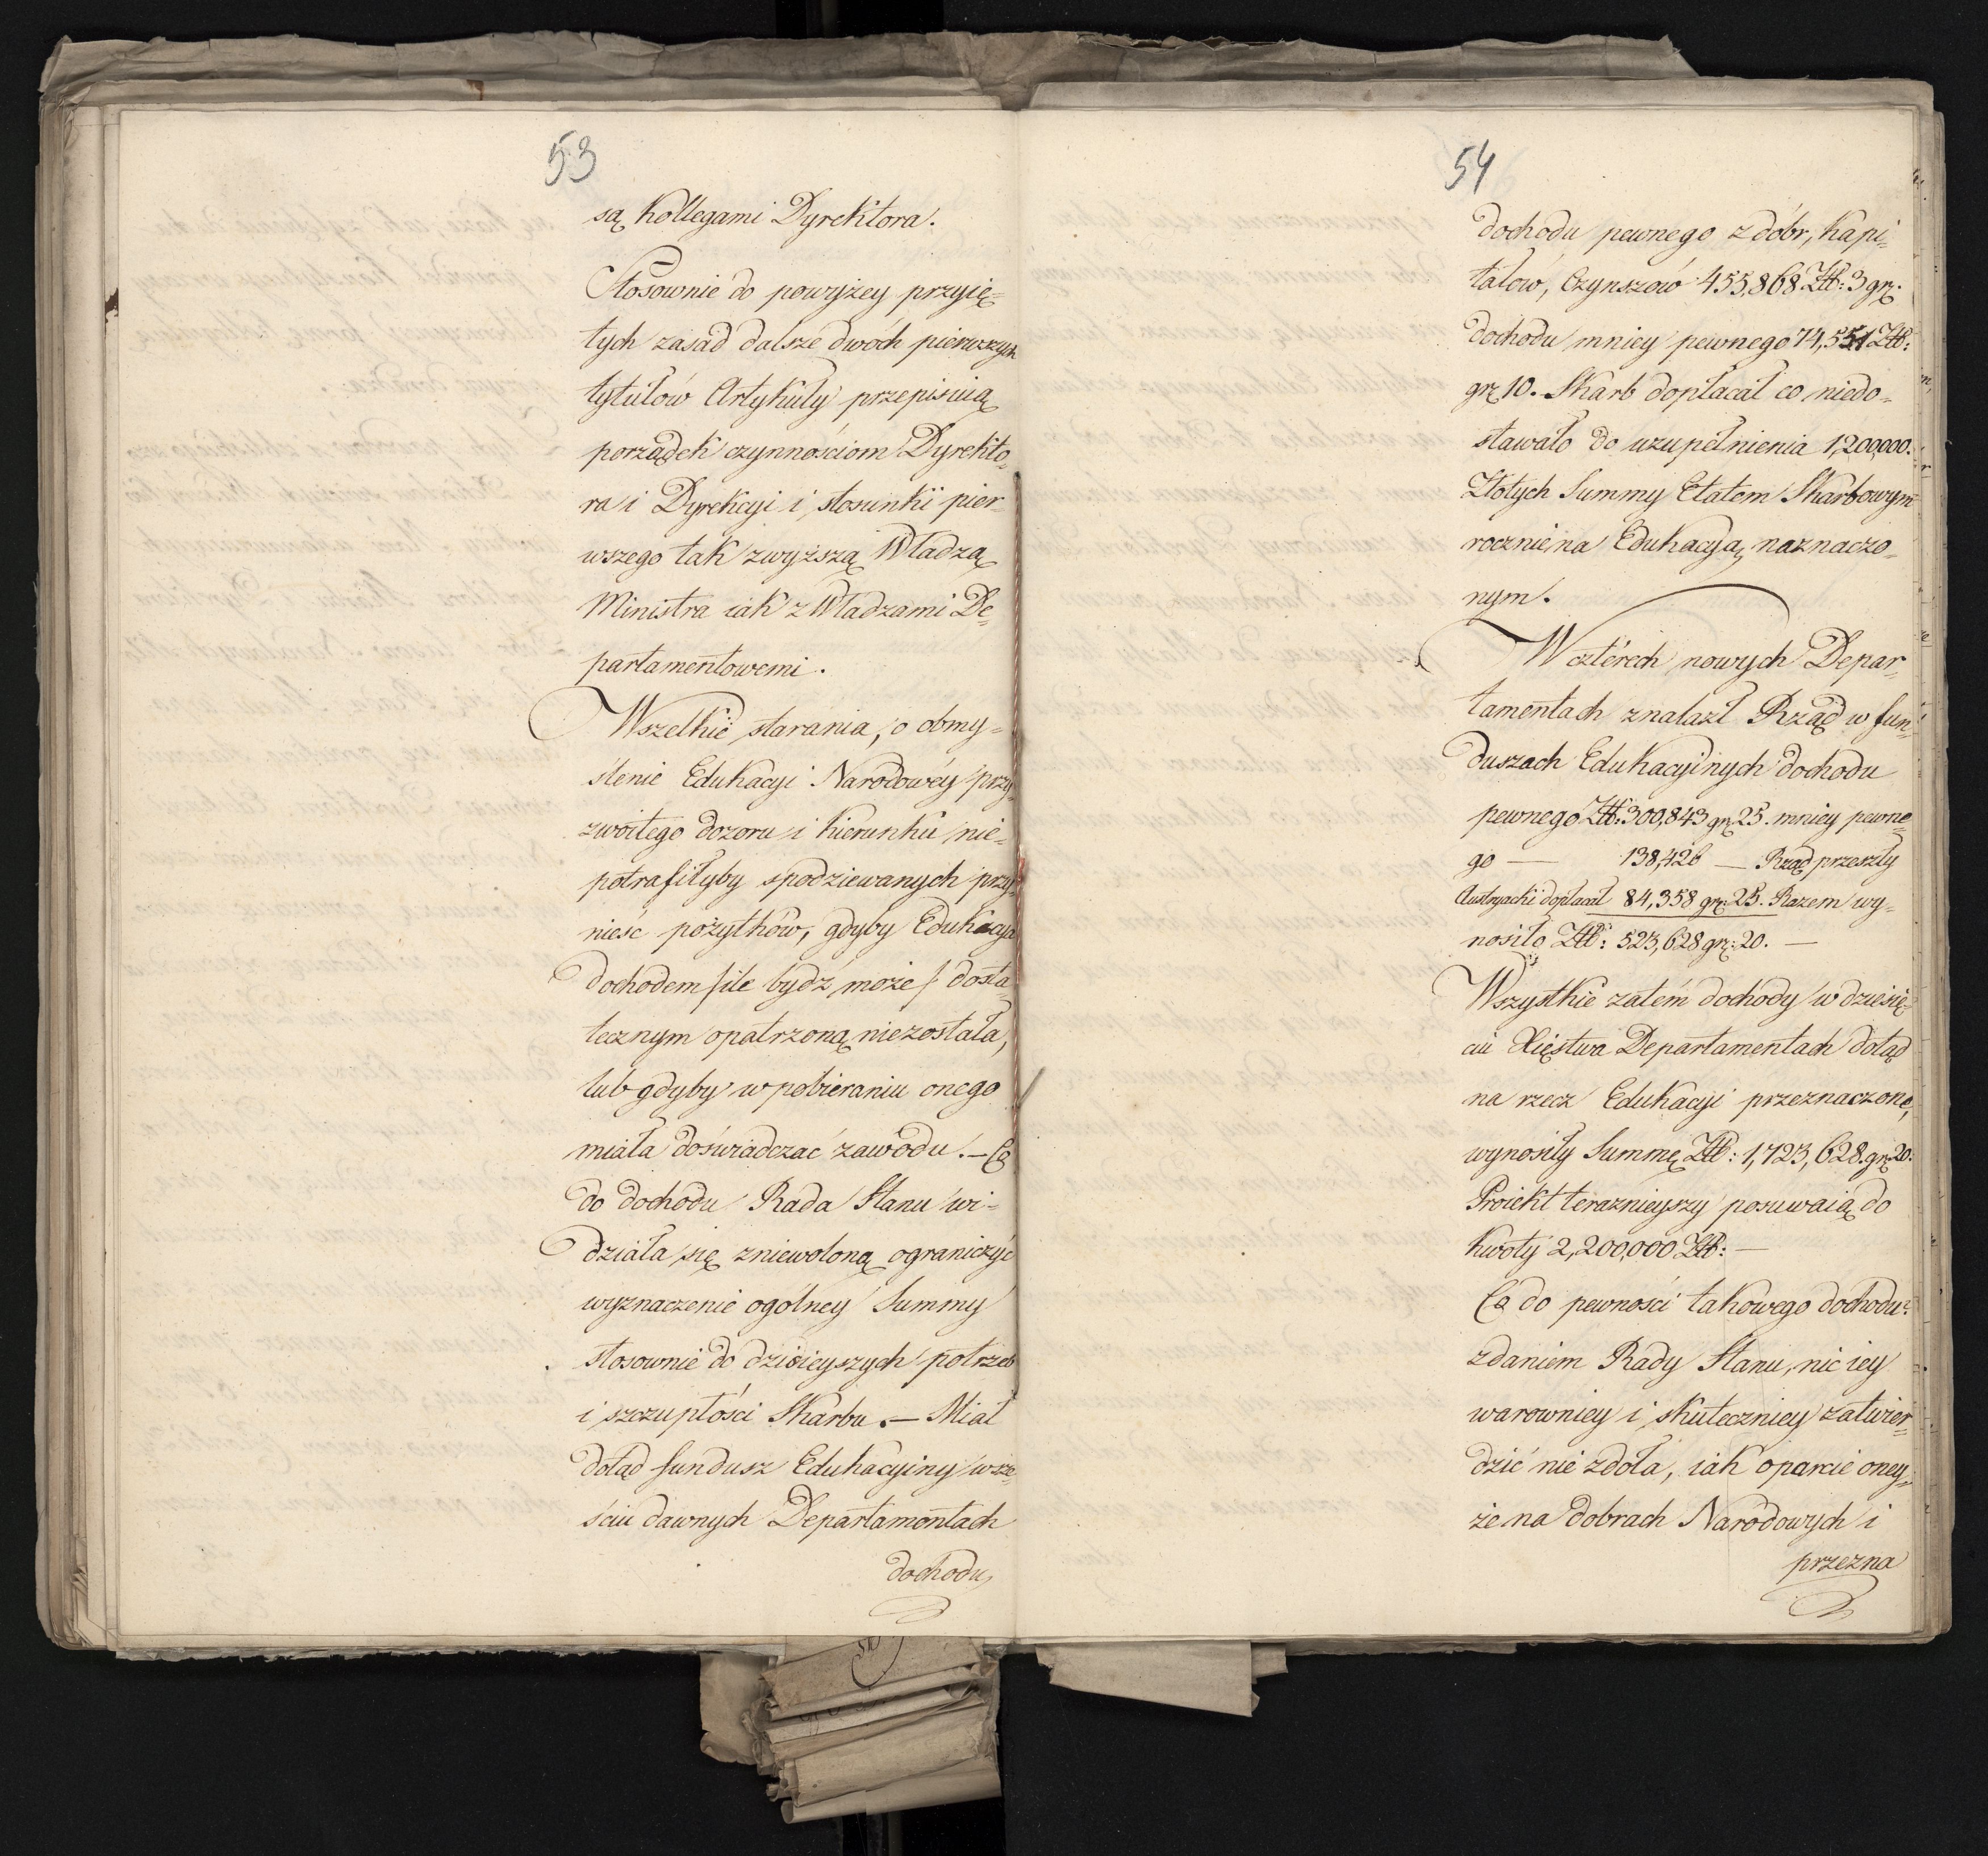 53
są Kollegami Dyrektora.
Stosownie do powyżey przyię=
tych zasad dalsze dwóch pierwszych
tytułów Artykuły przepisuią
porządek czynnościom Dyrekto=
ra i Dyrekcyi i stosunki pier=
wszego tak zwyższą Władzą
Ministra iak z Władzami De=
partamentowemi.
Wszelkie starania, o obmy=
ślenie Edukacyi Narodowéy przy=
zwoitego dozoru i kierunku nie=
potrafiłyby spodziewanych przy=
nieść pożytków, gdyby Edukacya
dochodem /ile bydź może/ dosta=
tecznym opatrzoną niezostała,
lub gdyby w pobieraniu onego
miała doświadczać zawodu. — Co
do dochodu Rada Stanu wi=
działa się zniewoloną ograniczyć
wyznaczenie ogólney Summy
stosownie do dzisieyszych potrzeb
i szczupłości Skarbu. — Miał
dotąd fundusz Edukacyiny w sze=
ściu dawnych Departamentach
dochodu
54
dochodu pewnego z dóbr, kapi=
tałów, Czynszów 455,868 Złt: 3 gr.
dochodu mniey pewnego 74,551 Złt:
gr 10. Skarb dopłacał co niedo=
stawało do uzupełnienia 1,200,000.
Złotych Summy Etatem Skarbowym
rocznie na Edukacyą naznaczo=
nym.
W cztérech nowych Depar=
tamentach znalazł Rząd w fun=
duszach Edukacyinych dochodu
pewnego Złt: 300,843 gr 25. mniey pewne=
go — 138,426 — Rząd przeszły
Austryacki dopłacał 84,358 gr: 25. Razem wy=
nosiło Złt: 523,628 gr: 20. —
Wszystkie zatém dochody w dziesię=
ciu Xięstwa Departamentach dotąd
na rzecz Edukacyi przeznaczone,
wynosiły Summę Złt: 1,723,628. gr 20.
Proiekt teraznieyszy posuwaią do
kwoty 2,200,000 Złt: —
Co do pewności takowego dochodu:
zdaniem Rady Stanu, nic iey
warowniey i skuteczniey zatwier=
dzić nie zdoła, iak oparcie oney=
że na dobrach Narodowych i
przezna